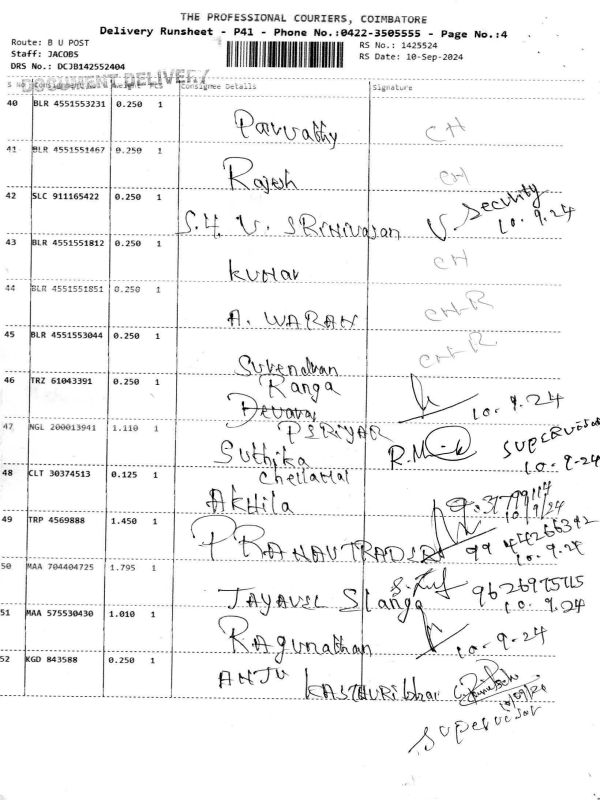 THE PROFESSIONAL COURIERS, COIMBATORE
Delivery Runsheet - P41 - Phone No.:0422-3505555 - Page No.:4
Route: B U POST
RS No.: 1425524
Staff: JACOB5
RS Date: 10-Sep-2024
DRS No.: DCJB142552404
DOCUMENT DELIVERY
S No Consignment No Weight PCS Consignee Details Signature
40 BLR 4551553231 0.250 1
Parvathy CH
41 BLR 4551551467 0.250 1
Rajesh CH
42 SLC 911165422 0.250 1
S.H. V. SRINIVASAN V. Security
10.9.24
43 BLR 4551551812 0.250 1
KUMAR CH
44 BLR 4551551851 0.250 1
A. WARAN CH-R
45 BLR 4551553044 0.250 1
Surendhan CH-R
46 TRZ 61043391 0.250 1
Ranga
Devaraj 10.9.24
47 NGL 200013941 1.110 1
PERIYAR
Suthika R.M SUPERVISOR
10.9-24
48 CLT 30374513 0.125 1
Chellamal
AKHila
10/9/24
49 TRP 4569888 1.450 1
PRANAV TRADER 99 44266392
10.9.24
50 MAA 704404725 1.795 1
JAYAVEL Slanga 9626975715
10.9.24
51 MAA 575530430 1.010 1
Ragunathan 10-9-24
52 KGD 843588 0.250 1
ANJU KASTHURI bhai
10/09/24
supervisor